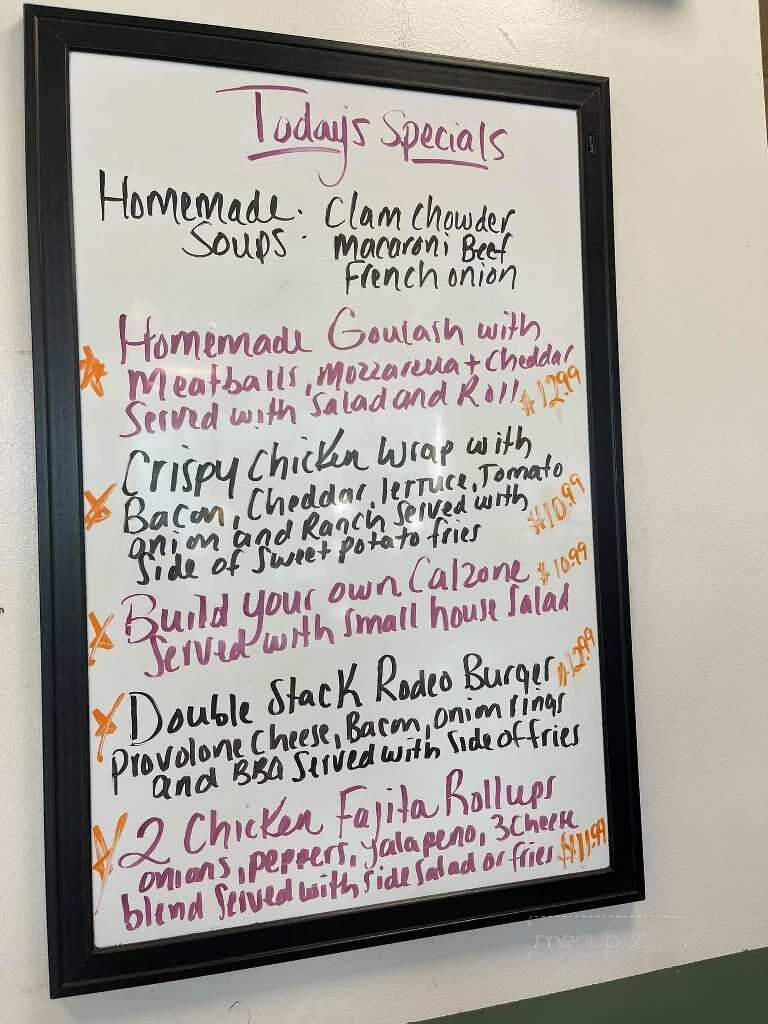 Today's Specials
Homemade. Clam Chowder
Soups. Macaroni Beef
French onion
Homemade Goulash with
Meatballs, Mozzarella + Cheddar
Served with Salad and Roll $12.99
Crispy Chicken Wrap with
Bacon, Cheddar, lettuce, Tomato
onion and Ranch Served with $10.99
side of Sweet potato fries
Build your own Calzone $10.99
Served with small house Salad
Double Stack Rodeo Burger $12.99
Provolone Cheese, Bacon, onion rings
and BBQ Served with side of fries
2 Chicken Fajita Rollups
onions, peppers, jalapeno, 3 Cheese
blend Served with side salad or fries $11.99
menupix